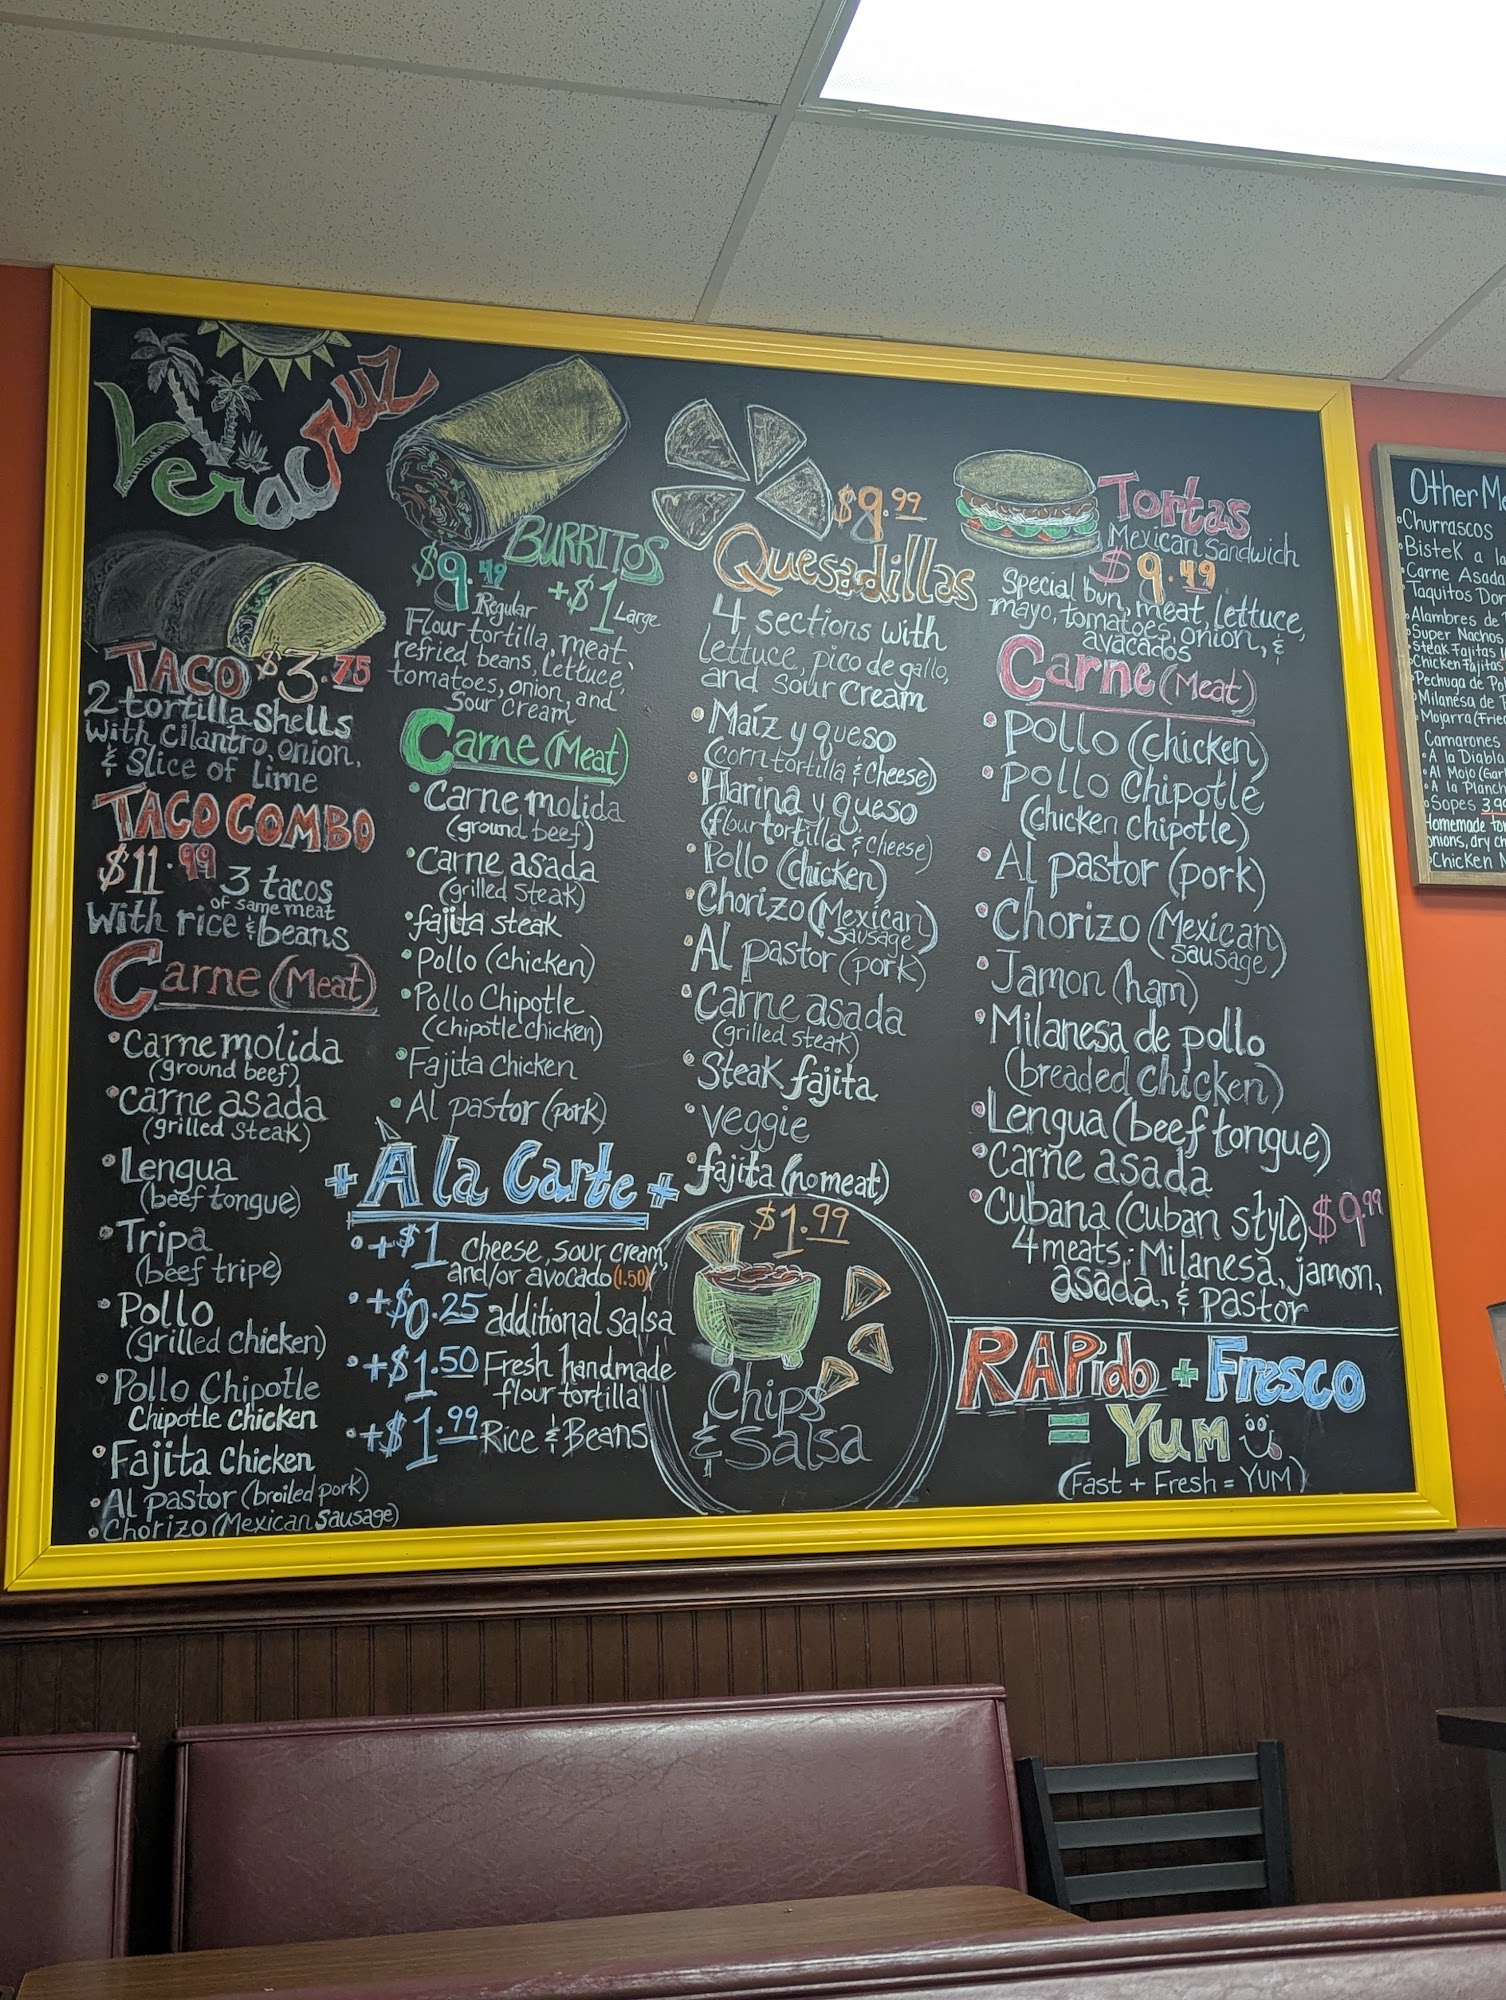 Veracruz
TACO $3.75
2 tortilla shells
with cilantro, onion,
& slice of lime
TACO COMBO
$11.99 3 tacos
of same meat
with rice & beans
Carne (Meat)
• Carne molida
(ground beef)
• carne asada
(grilled steak)
• Lengua
(beef tongue)
• Tripa
(beef tripe)
• Pollo
(grilled chicken)
• Pollo Chipotle
Chipotle chicken
• Fajita Chicken
• Al pastor (broiled pork)
• Chorizo (Mexican sausage)
BURRITOS
$9.49 Regular +$1 Large
Flour tortilla, meat,
refried beans, lettuce,
tomatoes, onion, and
sour cream
Carne (Meat)
• Carne molida
(ground beef)
• Carne asada
(grilled steak)
• fajita steak
• Pollo (chicken)
• Pollo Chipotle
(chipotle chicken)
• Fajita Chicken
• Al pastor (pork)
+ À la Carte +
• +$1 cheese, sour cream,
and/or avocado (1.50)
• +$0.25 additional salsa
• +$1.50 Fresh handmade
flour tortilla
• +$1.99 Rice & Beans
$9.99
Quesadillas
4 sections with
lettuce, pico de gallo,
and sour cream
• Maíz y queso
(corn tortilla & cheese)
• Harina y queso
(flour tortilla & cheese)
• Pollo (chicken)
• Chorizo (Mexican
sausage)
• Al pastor (pork)
• Carne asada
(grilled steak)
• Steak fajita
• veggie
• fajita (no meat)
$1.99
Chips
& Salsa
Tortas
Mexican Sandwich
$9.49
Special bun, meat, lettuce,
mayo, tomatoes, onion, &
avacados
Carne (Meat)
• Pollo (chicken)
• Pollo Chipotle
(chicken chipotle)
• Al pastor (pork)
• Chorizo (Mexican
sausage)
• Jamon (ham)
• Milanesa de pollo
(breaded chicken)
• Lengua (beef tongue)
• Carne asada
• Cubana (cuban style) $9.99
4 meats: Milanesa, jamon,
asada, & pastor
RAPido + Fresco
= Yum
(Fast + Fresh = YUM)
Other
• Churrascos
• Bistek a
• Carne Asada
• Taquitos
• Alambres de
• Super Nachos
• Steak Fajitas
• Chicken Fajitas
• Pechuga de
• Milanesa de
• Mojarra
Camarones
• A la Diabla
• Al Mojo
• A la
• Sopes
Homemade
onions, dry
• Chicken